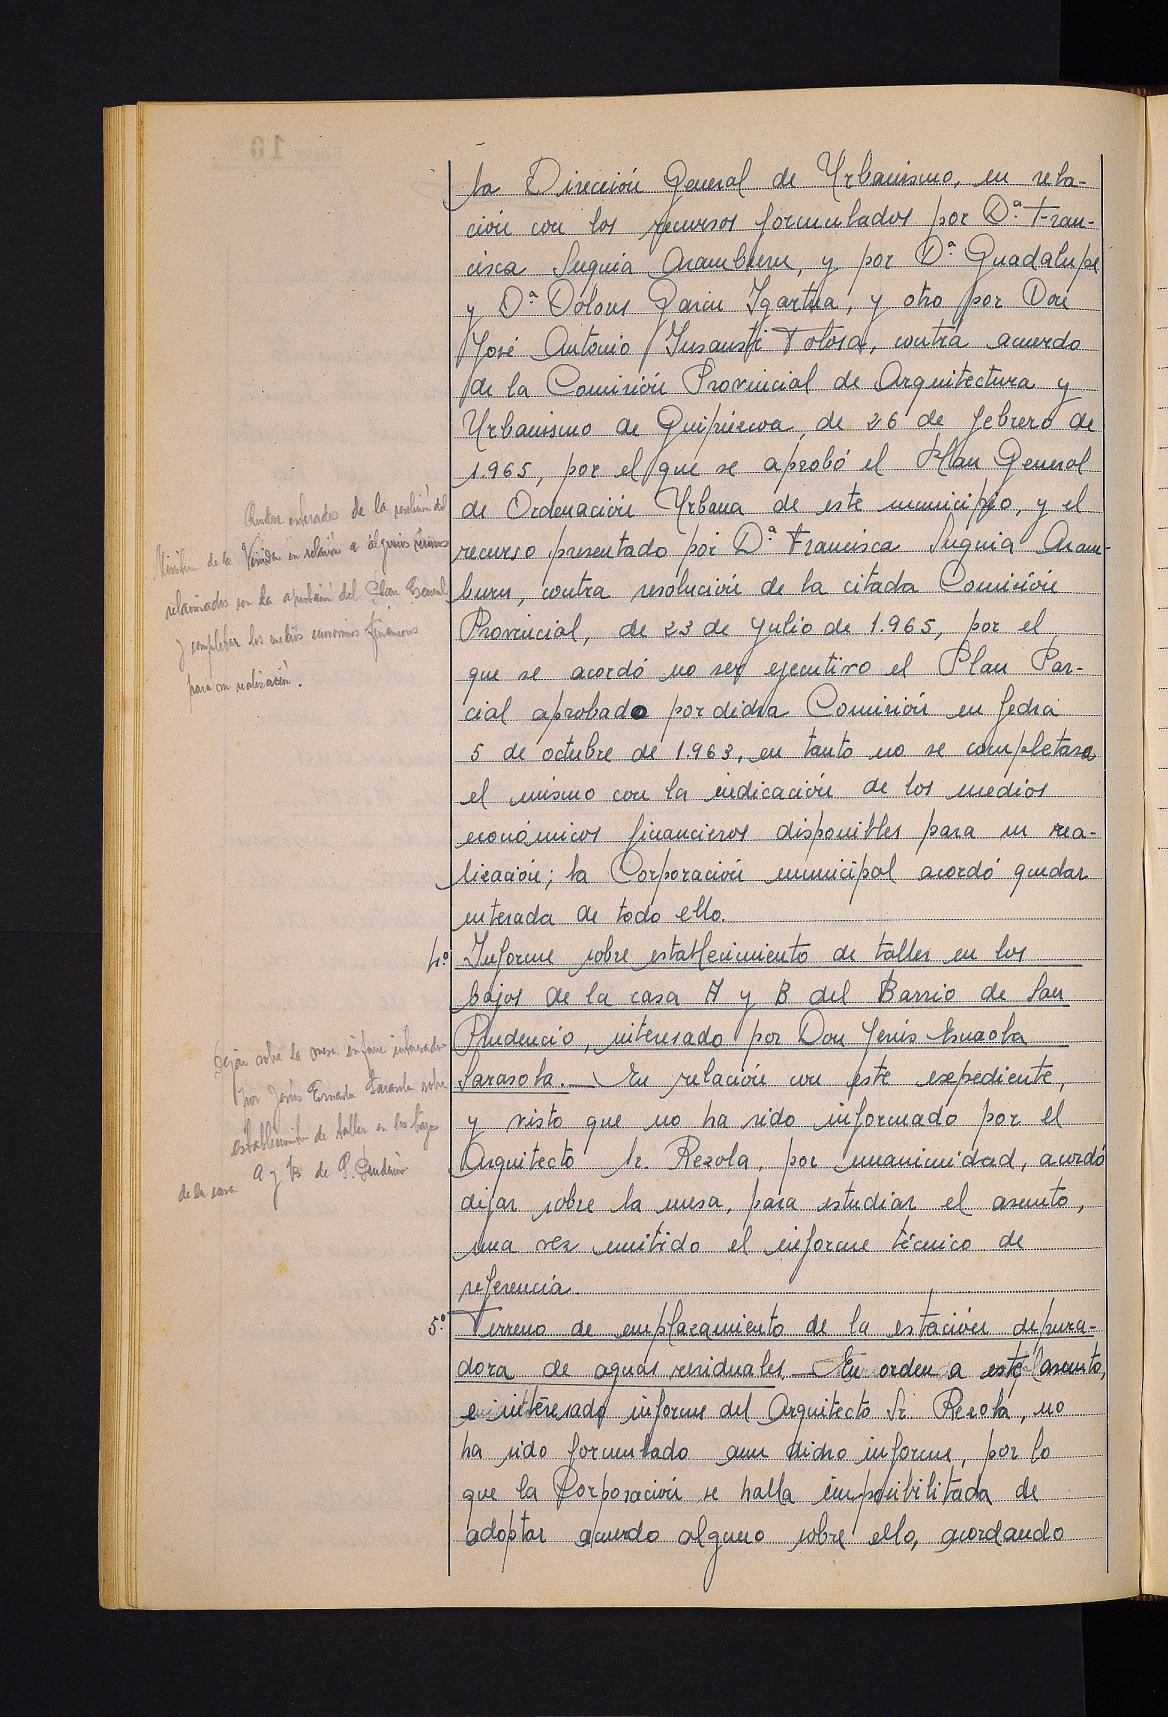 la Dirección General de Urbanismo, en rela-
ción con los recursos formulados por Dª. Fran-
cisca Suguia Aramburu, y por Dª Guadalupe
y Dª. Dolores Garin Igartua, y otro por Don
José Antonio Insausti Tolosa, contra acuerdo
de la Comisión Provincial de Arquitectura y
Urbanismo de Guipúzcoa, de 26 de febrero de
1.965, por el que se aprobó el Plan General
de Ordenación Urbana de este municipio, y el
recurso presentado por Dª Francisca Suguia Aram-
buru, contra resolución de la citada Comisión
Provincial, de 23 de Julio de 1.965, por el
que se acordó no ser ejecutivo el Plan Par-
cial aprobado por dicha Comisión en fecha
5 de octubre de 1.963, en tanto no se completara
el mismo con la indicación de los medios
económicos financieros disponibles para su rea-
lización; la Corporación municipal acordó quedar
enterada de todo ello.
Quedar enterados de la resolución del
Ministerio de la Vivienda en relación a algunos recursos
relacionados con la aprobación del Plan General
y completar los medios económicos financieros
para su realización.
4º. Informe sobre establecimiento de taller en los
bajos de la casa A y B del Barrio de San
Prudencio, interesado por Don Jesús Esnaola
Sarasola.— En relación con este expediente,
y visto que no ha sido informado por el
Arquitecto Sr. Rezola, por unanimidad, acordó
dejar sobre la mesa, para estudiar el asunto,
una vez emitido el informe técnico de
referencia.
Dejar sobre la mesa informe interesado
por Jesús Esnaola Sarasola sobre
establecimiento de taller en los bajos
de la casa A y B de S. Prudencio
5º. Terreno de emplazamiento de la estación depura-
dora de aguas residuales.— En orden a este asunto,
e interesado informe del Arquitecto Sr. Rezola, no
ha sido formulado aun dicho informe, por lo
que la Corporación se halla imposibilitada de
adoptar acuerdo alguno sobre ello, acordando